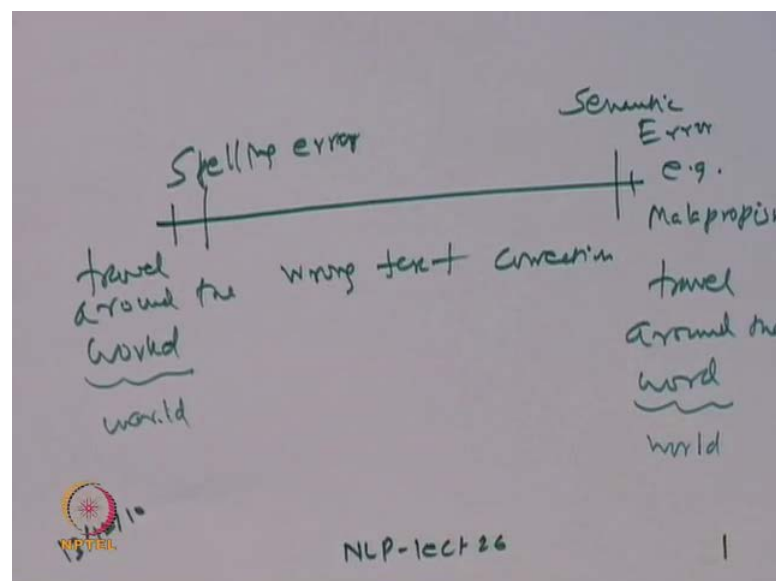 Semantic
Error
e.g.
Malapropis
Spelling error
travel
around the
workd
world
wrong text correction
travel
around the
word
world
NPTEL
NLP-lect 26
1